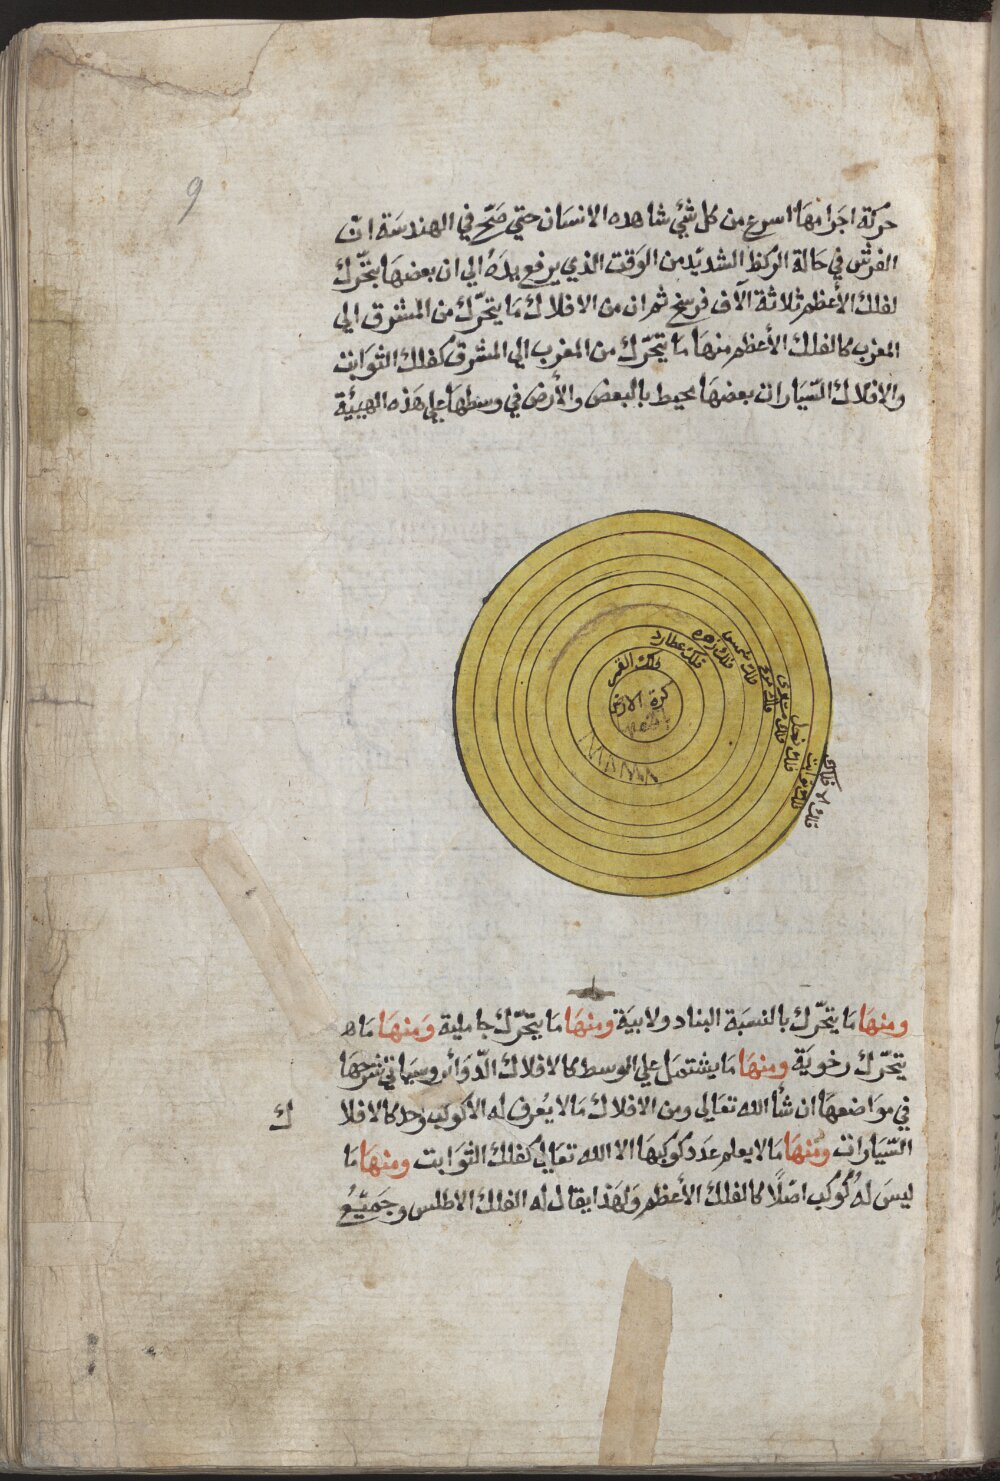 9
حركة اجرامها اسرع من كل شئي شاهده الانسان حتي صَحّ في الهندسَة ان
الفرس في حالة الركظ الشديد من الوَقت الذي يرفع يدَهُ الي ان بعضهَا يتحّرك
لفلك الأعظم ثلاثة آلاف فرسخ ثم ان من الافلاك مَا يتحرّك من المشرق الي
المغرب كالفلك الأعظم منهَا مَا يتحّرك من المغرب الي المشرق كفلك الثوَابت
والافلاك السّيَارات بعضهَا محيط بالبعض والأرض في وسطهَا علي هَذه الهيئة
فلك الافلاك
فلك ثوابت
فلك زحل
فلك مشتري
فلك مريخ
فلك شمس
فلك زهره
فلك عطارد
فلك القمر
كرة الارض
ومنهَا مَا يتحّرك بالنسبَة الينا دولابيَة ومنهَا مَا يتحّرك حاملية وَمنهَا مَا ه
يتحّرك رخويَّة ومنهَا مَا يشتمل علي الوسط كالافلاك الدّوَائر وسياتي شرحهَا
في موَاضعهَا ان شأ الله تعَالى ومن الافلاك مَا لا يُعرف له الا كوكب وَاحد كالافلا
ك
السّيارات ومنهَا مَا لا يعلم عَدد كوكبهَا الا الله تعَالي كفلك الثوَابت ومنهَا مَا
ليسَ لهُ كَوكب اصْلًا كالفلك الأعظم وَلهَذا يقال له الفلك الاطلس وجَميْعُ